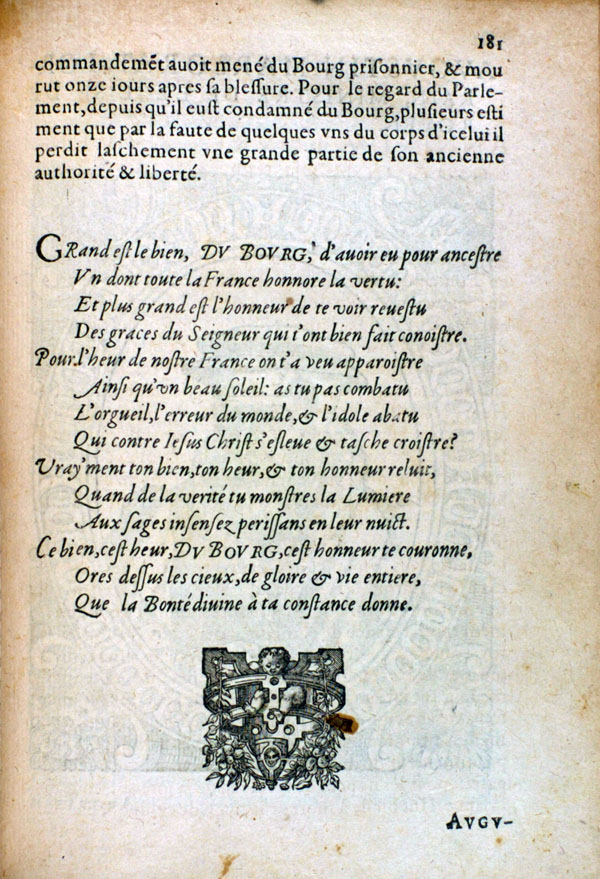 181
commandemēt auoit mené du Bourg priſonnier, & mou
rut onze iours apres ſa bleſſure. Pour le regard du Parle-
ment, depuis qu'il euſt condamné du Bourg, pluſieurs eſti
ment que par la faute de quelques vns du corps d'icelui il
perdit laſchement vne grande partie de ſon ancienne
authorité & liberté.
GRand eſt le bien, DV BOVRG, d'auoir eu pour anceſtre
Vn dont toute la France honnore la vertu:
Et plus grand eſt l'honneur de te voir reueſtu
Des graces du Seigneur qui t'ont bien fait conoiſtre.
Pour l'heur de noſtre France on t'a veu apparoiſtre
Ainſi qu'vn beau ſoleil: as tu pas combatu
L'orgueil, l'erreur du monde, & l'idole abatu
Qui contre Ieſus Chriſt s'eſleue & taſche croiſtre?
Vray'ment ton bien, ton heur, & ton honneur reluit,
Quand de la verité tu monſtres la Lumiere
Aux ſages inſenſez periſſans en leur nuict.
Ce bien, ceſt heur, DV BOVRG, ceſt honneur te couronne,
Ores deſſus les cieux, de gloire & vie entiere,
Que la Bonté diuine à ta conſtance donne.
AVGV-